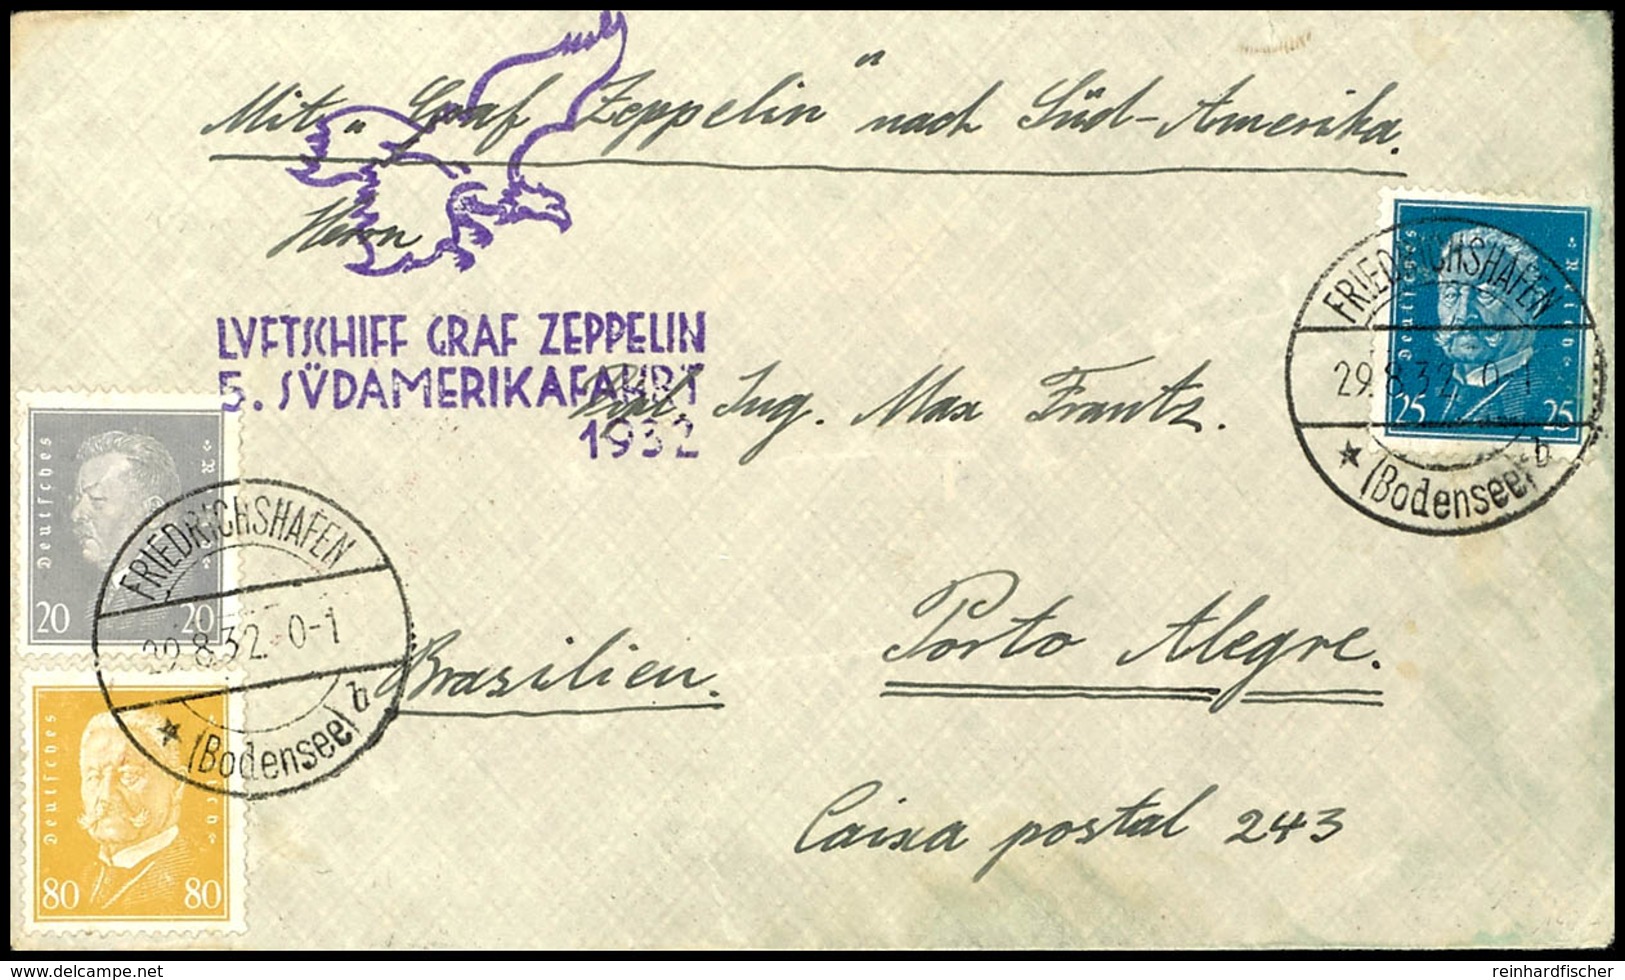 Mit "Graf Zeppelin" nach Süd-Amerika.
Herrn
LVFTSCHIFF GRAF ZEPPELIN
5. SÜDAMERIKAFAHRT
1932
Ing. Max Frantz.
Deutsches Reich
25 25
FRIEDRICHSHAFEN
29.8.32. 0-1
(Bodensee) b
Deutsches Reich
20 20
FRIEDRICHSHAFEN
29.8.32. 0-1
(Bodensee) b
Porto Alegre.
Brasilien.
Deutsches Reich
80 80
Caixa postal 243
delcampe.net
reinhardfischer